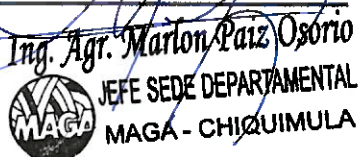 Ing. Agr. Marlon Paiz Osorio
JEFE SEDE DEPARTAMENTAL
MAGA
MAGA - CHIQUIMULA